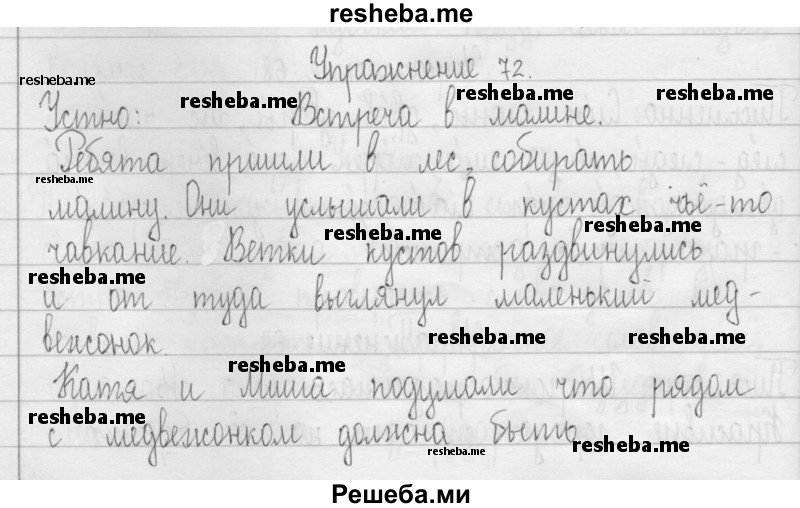 resheba.me
Упражнение 72.
resheba.me
Устно: resheba.me Встреча в малине. resheba.me resheba.me
Ребята пришли в лес собирать
resheba.me
малину. Они услышали в кустах чьё-то
resheba.me resheba.me
чавкание. Ветки кустов раздвинулись
resheba.me
и от туда выглянул маленький мед-
вежонок. resheba.me resheba.me
resheba.me
Катя и Миша подумали что рядом
resheba.me
с медвежонком должна быть
resheba.me resheba.me
Решеба.ми